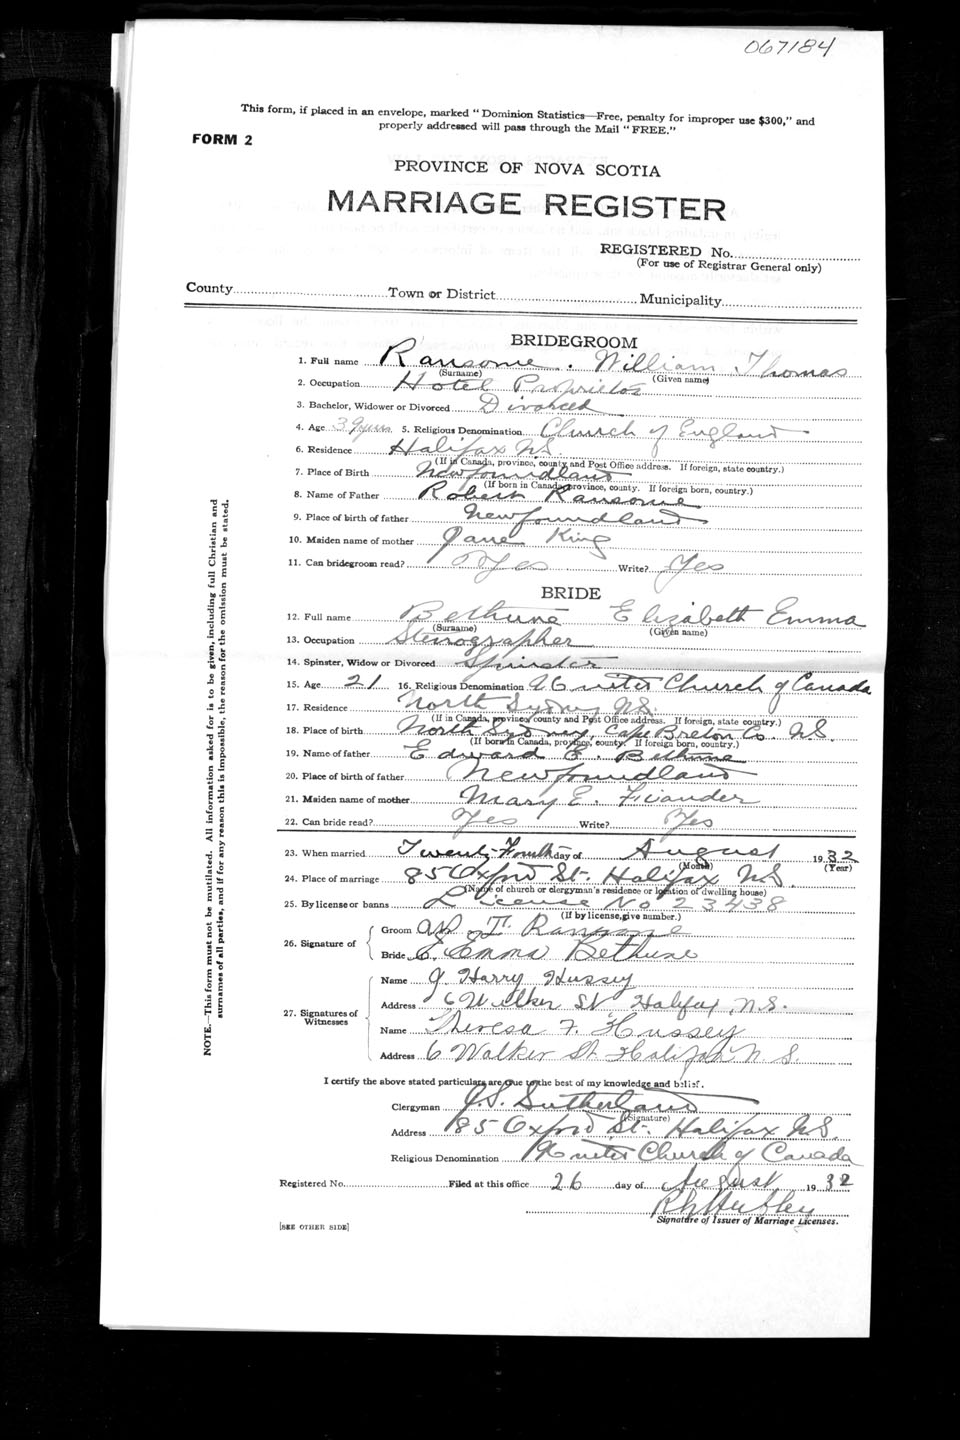 067184
This form, if placed in an envelope, marked "Dominion Statistics—Free, penalty for improper use $300," and
properly addressed will pass through the Mail "FREE."
FORM 2
PROVINCE OF NOVA SCOTIA
MARRIAGE REGISTER
REGISTERED No.
(For use of Registrar General only)
County Town or District Municipality
BRIDEGROOM
1. Full name Ransome. William Thomas
(Surname) (Given name)
2. Occupation Hotel Proprietor
3. Bachelor, Widower or Divorced Divorced
4. Age 39 yrs 5. Religious Denomination Church of England
6. Residence Halifax N.S.
(If in Canada, province, county and Post Office address. If foreign, state country.)
7. Place of Birth Newfoundland
(If born in Canada, province, county. If foreign born, country.)
8. Name of Father Robert Ransome
9. Place of birth of father Newfoundland
10. Maiden name of mother Jane King
11. Can bridegroom read? Yes Write? Yes
BRIDE
12. Full name Bethune Elizabeth Emma
(Surname) (Given name)
13. Occupation Stenographer
14. Spinster, Widow or Divorced Spinster
15. Age 21 16. Religious Denomination United Church of Canada
17. Residence North Sydney N.S.
(If in Canada, province, county and Post Office address. If foreign, state country.)
18. Place of birth North Sydney, Cape Breton Co. N.S.
(If born in Canada, province, county. If foreign born, country.)
19. Name of father Edward E. Bethune
20. Place of birth of father Newfoundland
21. Maiden name of mother Mary E.
22. Can bride read? Yes Write? Yes
23. When married Twenty-Fourth day of August 1932
(Month) (Year)
24. Place of marriage 85 Oxford St. Halifax N.S.
(Name of church or clergyman's residence or location of dwelling house)
25. By license or banns License No 23438
(If by license, give number.)
26. Signature of
Groom W. T. Ransome
Bride E. Emma Bethune
27. Signatures of Witnesses
Name J Harry Hussey
Address 6 Walker St Halifax, N.S.
Name Theresa F. Hussey
Address 6 Walker St Halifax N.S.
I certify the above stated particulars are true to the best of my knowledge and belief.
Clergyman J.S. Sutherland
(Signature)
Address 85 Oxford St. Halifax N.S.
Religious Denomination United Church of Canada
Registered No. Filed at this office 26 day of August 1932
Signature of Issuer of Marriage Licenses.
[SEE OTHER SIDE]
NOTE.—This form must not be mutilated. All information asked for is to be given, including full Christian and
surnames of all parties, and if for any reason this is impossible, the reason for the omission must be stated.